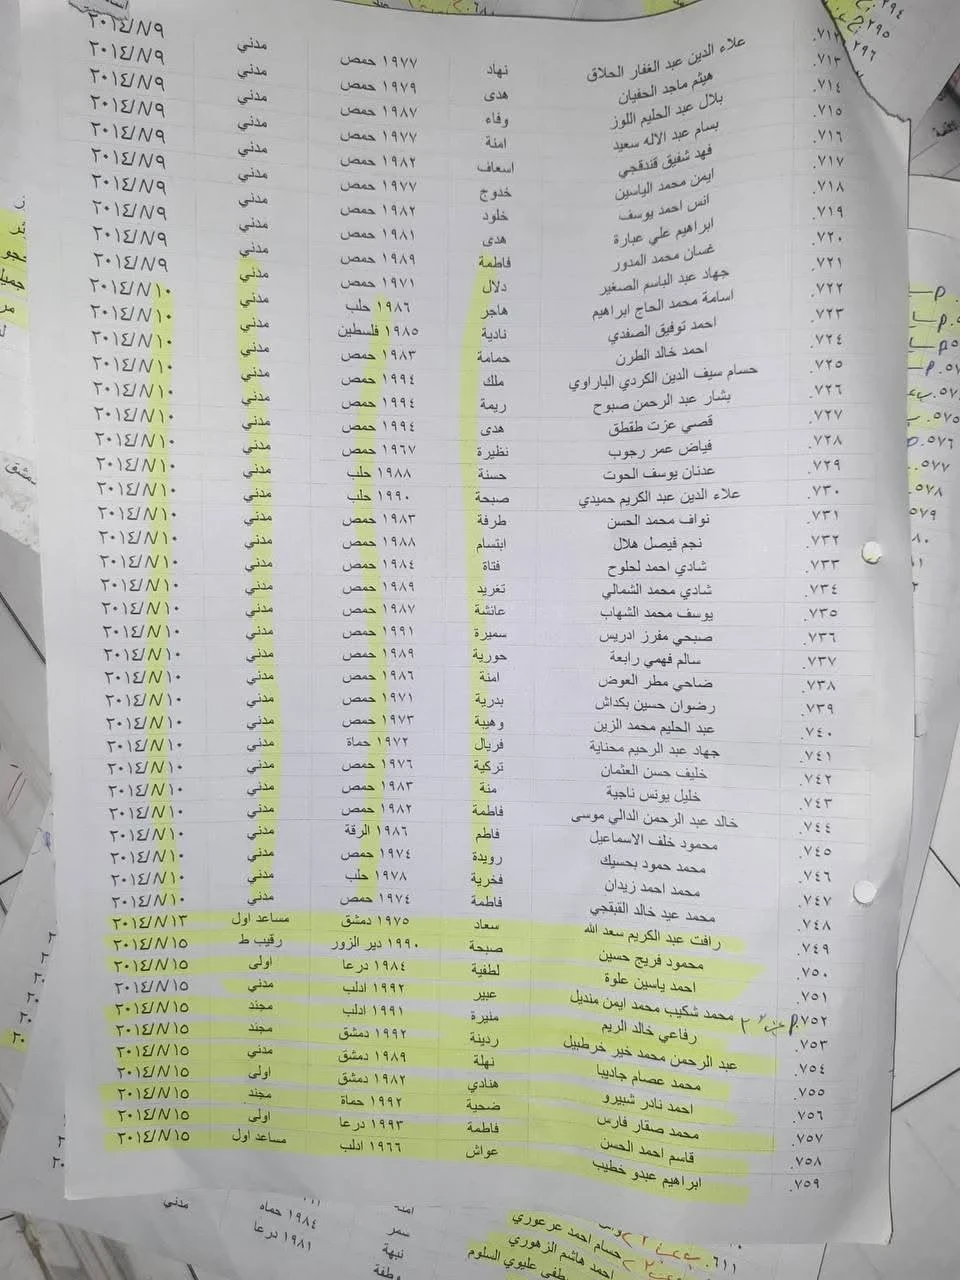 ٧١٢. علاء الدين عبد الغفار الحلاق نهاد ١٩٧٧ حمص مدني ٢٠١٤/٨/٩
٧١٣. هيثم ماجد الحفيان هدى ١٩٧٩ حمص مدني ٢٠١٤/٨/٩
٧١٤. بلال عبد الحليم اللوز وفاء ١٩٨٧ حمص مدني ٢٠١٤/٨/٩
٧١٥. بسام عبد الاله سعيد امنة ١٩٧٧ حمص مدني ٢٠١٤/٨/٩
٧١٦. فهد شفيق قندقجي اسعاف ١٩٨٢ حمص مدني ٢٠١٤/٨/٩
٧١٧. ايمن محمد الياسين خدوج ١٩٧٧ حمص مدني ٢٠١٤/٨/٩
٧١٨. انس احمد يوسف خلود ١٩٨٢ حمص مدني ٢٠١٤/٨/٩
٧١٩. ابراهيم علي عبارة هدى ١٩٨١ حمص مدني ٢٠١٤/٨/٩
٧٢٠. غسان محمد المدور فاطمة ١٩٨٩ حمص مدني ٢٠١٤/٨/٩
٧٢١. جهاد عبد الباسم الصغير دلال ١٩٧١ حمص مدني ٢٠١٤/٨/٩
٧٢٢. اسامة محمد الحاج ابراهيم هاجر ١٩٨٦ حلب مدني ٢٠١٤/٨/١٠
٧٢٣. احمد توفيق الصفدي نادية ١٩٨٥ فلسطين مدني ٢٠١٤/٨/١٠
٧٢٤. احمد خالد الطرن حمامة ١٩٨٣ حمص مدني ٢٠١٤/٨/١٠
٧٢٥. حسام سيف الدين الكردي الباراوي ملك ١٩٩٤ حمص مدني ٢٠١٤/٨/١٠
٧٢٦. بشار عبد الرحمن صبوح ريمة ١٩٩٤ حمص مدني ٢٠١٤/٨/١٠
٧٢٧. قصي عزت طقطق هدى ١٩٩٤ حمص مدني ٢٠١٤/٨/١٠
٧٢٨. فياض عمر رجوب نظيرة ١٩٦٧ حمص مدني ٢٠١٤/٨/١٠
٧٢٩. عدنان يوسف الحوت حسنة ١٩٨٨ حلب مدني ٢٠١٤/٨/١٠
٧٣٠. علاء الدين عبد الكريم حميدي صبحة ١٩٩٠ حلب مدني ٢٠١٤/٨/١٠
٧٣١. نواف محمد الحسن طرفة ١٩٨٣ حمص مدني ٢٠١٤/٨/١٠
٧٣٢. نجم فيصل هلال ابتسام ١٩٨٨ حمص مدني ٢٠١٤/٨/١٠
٧٣٣. شادي احمد لحلوح فتاة ١٩٨٤ حمص مدني ٢٠١٤/٨/١٠
٧٣٤. شادي محمد الشمالي تغريد ١٩٨٩ حمص مدني ٢٠١٤/٨/١٠
٧٣٥. يوسف محمد الشهاب عائشة ١٩٨٧ حمص مدني ٢٠١٤/٨/١٠
٧٣٦. صبحي مفرز ادريس سميرة ١٩٩١ حمص مدني ٢٠١٤/٨/١٠
٧٣٧. سالم فهمي رابعة حورية ١٩٨٩ حمص مدني ٢٠١٤/٨/١٠
٧٣٨. ضاحي مطر العوض امنة ١٩٨٦ حمص مدني ٢٠١٤/٨/١٠
٧٣٩. رضوان حسين بكداش بدرية ١٩٧١ حمص مدني ٢٠١٤/٨/١٠
٧٤٠. عبد الحليم محمد الزين وهيبة ١٩٧٣ حمص مدني ٢٠١٤/٨/١٠
٧٤١. جهاد عبد الرحيم محناية فريال ١٩٧٢ حماة مدني ٢٠١٤/٨/١٠
٧٤٢. خليف حسن العثمان تركية ١٩٧٦ حمص مدني ٢٠١٤/٨/١٠
٧٤٣. خليل يونس ناجية منة ١٩٨٣ حمص مدني ٢٠١٤/٨/١٠
٧٤٤. خالد عبد الرحمن الدالي موسى فاطمة ١٩٨٢ حمص مدني ٢٠١٤/٨/١٠
٧٤٥. محمود خلف الاسماعيل فاطم ١٩٨٦ الرقة مدني ٢٠١٤/٨/١٠
٧٤٦. محمد حمود بحسيك رويدة ١٩٧٤ حمص مدني ٢٠١٤/٨/١٠
٧٤٧. محمد احمد زيدان فخرية ١٩٧٨ حلب مدني ٢٠١٤/٨/١٠
٧٤٨. محمد عيد خالد القبقجي فاطمة ١٩٧٤ حمص مدني ٢٠١٤/٨/١٠
٧٤٩. رافت عبد الكريم سعد الله سعاد ١٩٧٥ دمشق مساعد اول ٢٠١٤/٨/١٣
٧٥٠. محمود فريج حسين صبحة ١٩٩٠ دير الزور رقيب ط ٢٠١٤/٨/١٥
٧٥١. احمد ياسين علوة لطفية ١٩٨٤ درعا اولى ٢٠١٤/٨/١٥
٧٥٢. محمد شكيب محمد ايمن منديل عبير ١٩٩٢ ادلب مدني ٢٠١٤/٨/١٥
٧٥٣. رفاعي خالد الريم منيرة ١٩٩١ ادلب مجند ٢٠١٤/٨/١٥
٧٥٤. عبد الرحمن محمد خير خرطبيل ردينة ١٩٩٢ دمشق مجند ٢٠١٤/٨/١٥
٧٥٥. محمد عصام جاديبا نهلة ١٩٨٩ دمشق مدني ٢٠١٤/٨/١٥
٧٥٦. احمد نادر شبيرو هنادي ١٩٨٢ دمشق اولى ٢٠١٤/٨/١٥
٧٥٧. محمد صقار فارس ضحية ١٩٩٢ حماة مجند ٢٠١٤/٨/١٥
٧٥٨. قاسم احمد الحسن فاطمة ١٩٩٣ درعا اولى ٢٠١٤/٨/١٥
٧٥٩. ابراهيم عبدو خطيب عواش ١٩٦٦ ادلب مساعد اول ٢٠١٤/٨/١٥
حسام احمد عرعوري سمر ١٩٨٤ حماه مدني
٦١١. احمد هاشم الزهوري نبيهة ١٩٨١ درعا
عليوي السلوم وطفة